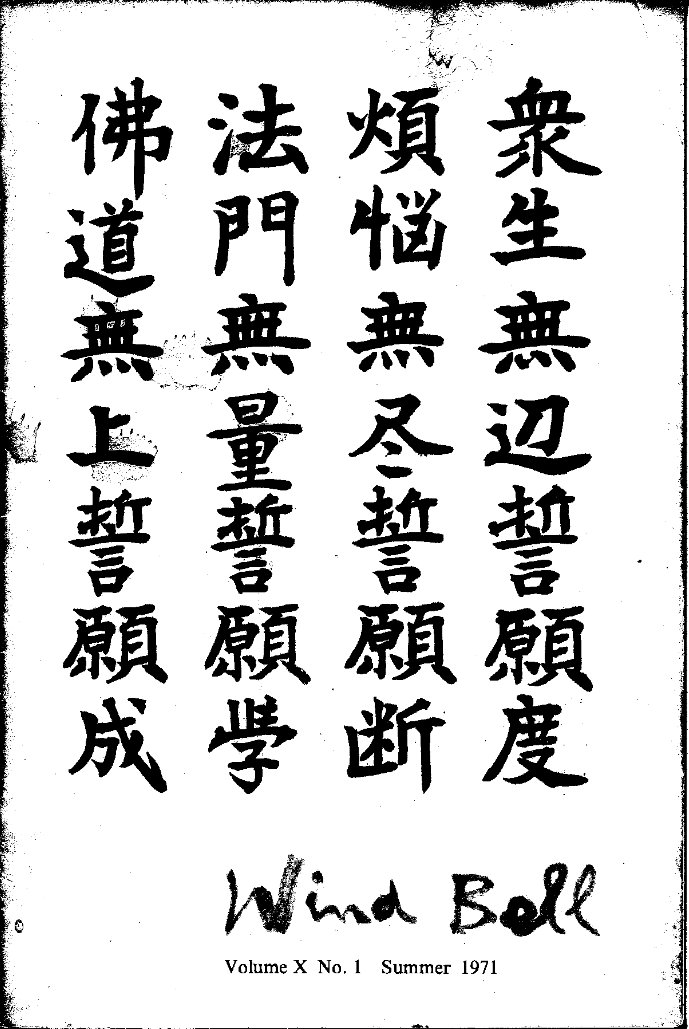 衆生無辺誓願度
煩悩無尽誓願断
法門無量誓願學
佛道無上誓願成
Wind Bell
Volume X No. 1 Summer 1971